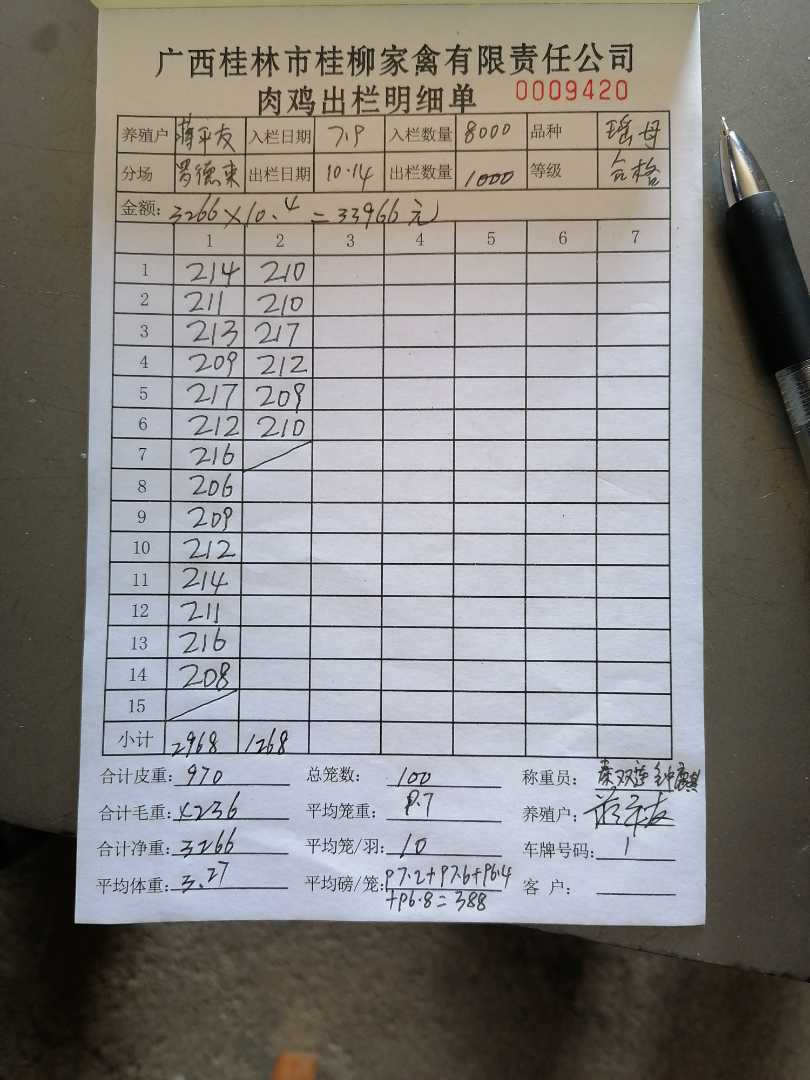 广西桂林市桂柳家禽有限责任公司
肉鸡出栏明细单 0009420
养殖户 蒋平友 入栏日期 7.9 入栏数量 8000 品种 瑶母
分场 罗德来 出栏日期 10.14 出栏数量 1000 等级 合格
金额: 3266×10.4=33966元
1 2 3 4 5 6 7
1 214 210
2 211 210
3 213 217
4 209 212
5 217 209
6 212 210
7 216
8 206
9 209
10 212
11 214
12 211
13 216
14 208
15
小计 2968 1268
合计皮重: 970 总笼数: 100 称重员: 秦双莲 钟麒
合计毛重: 4236 平均笼重: 9.7 养殖户: 蒋平友
合计净重: 3266 平均笼/羽: 10 车牌号码: 1
平均体重: 3.27 平均磅/笼: 97.2+97.6+96.4
+96.8=388
客 户: